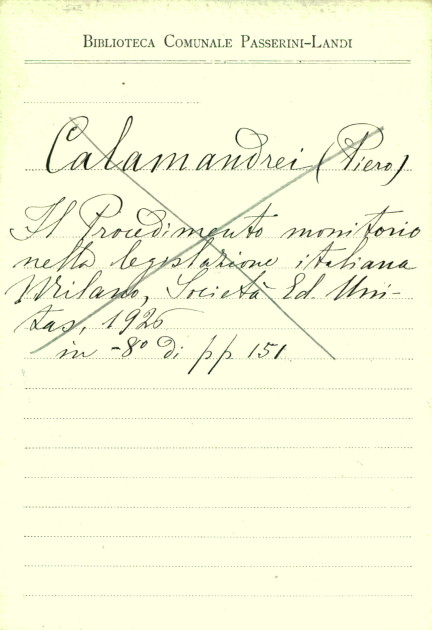 BIBLIOTECA COMUNALE PASSERINI-LANDI
Calamandrei (Piero)
Il Procedimento monitorio
nella legislazione italiana
Milano, Società Ed. Uni-
tas, 1926
in -8° di pp 151